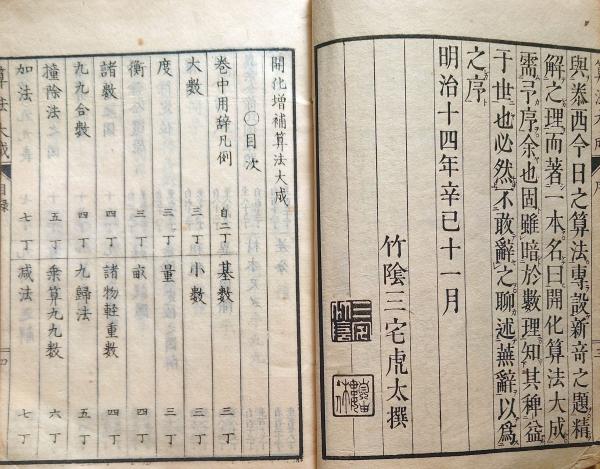 與泰西今日之算法專設新竒之題精
解之理而著一本名曰開化算法大成
需予序余也固雖暗於數理知其稗益
于世也必然不敢辭之聊述蕪辭以爲
之序
明治十四年辛巳十一月
竹陰三宅虎太撰
開化增補算法大成
目次
巻中用辞凡例 自二丁 基數 三丁
大數 三丁 小數 三丁
度 三丁 量 三丁
衡 三丁 畝 四丁
諸數 四丁 諸物軽重數 四丁
九九合數 四丁 九歸法 五丁
撞除法 五丁 乗算九九數 六丁
如法 七丁 减法 七丁
算法大成 目録